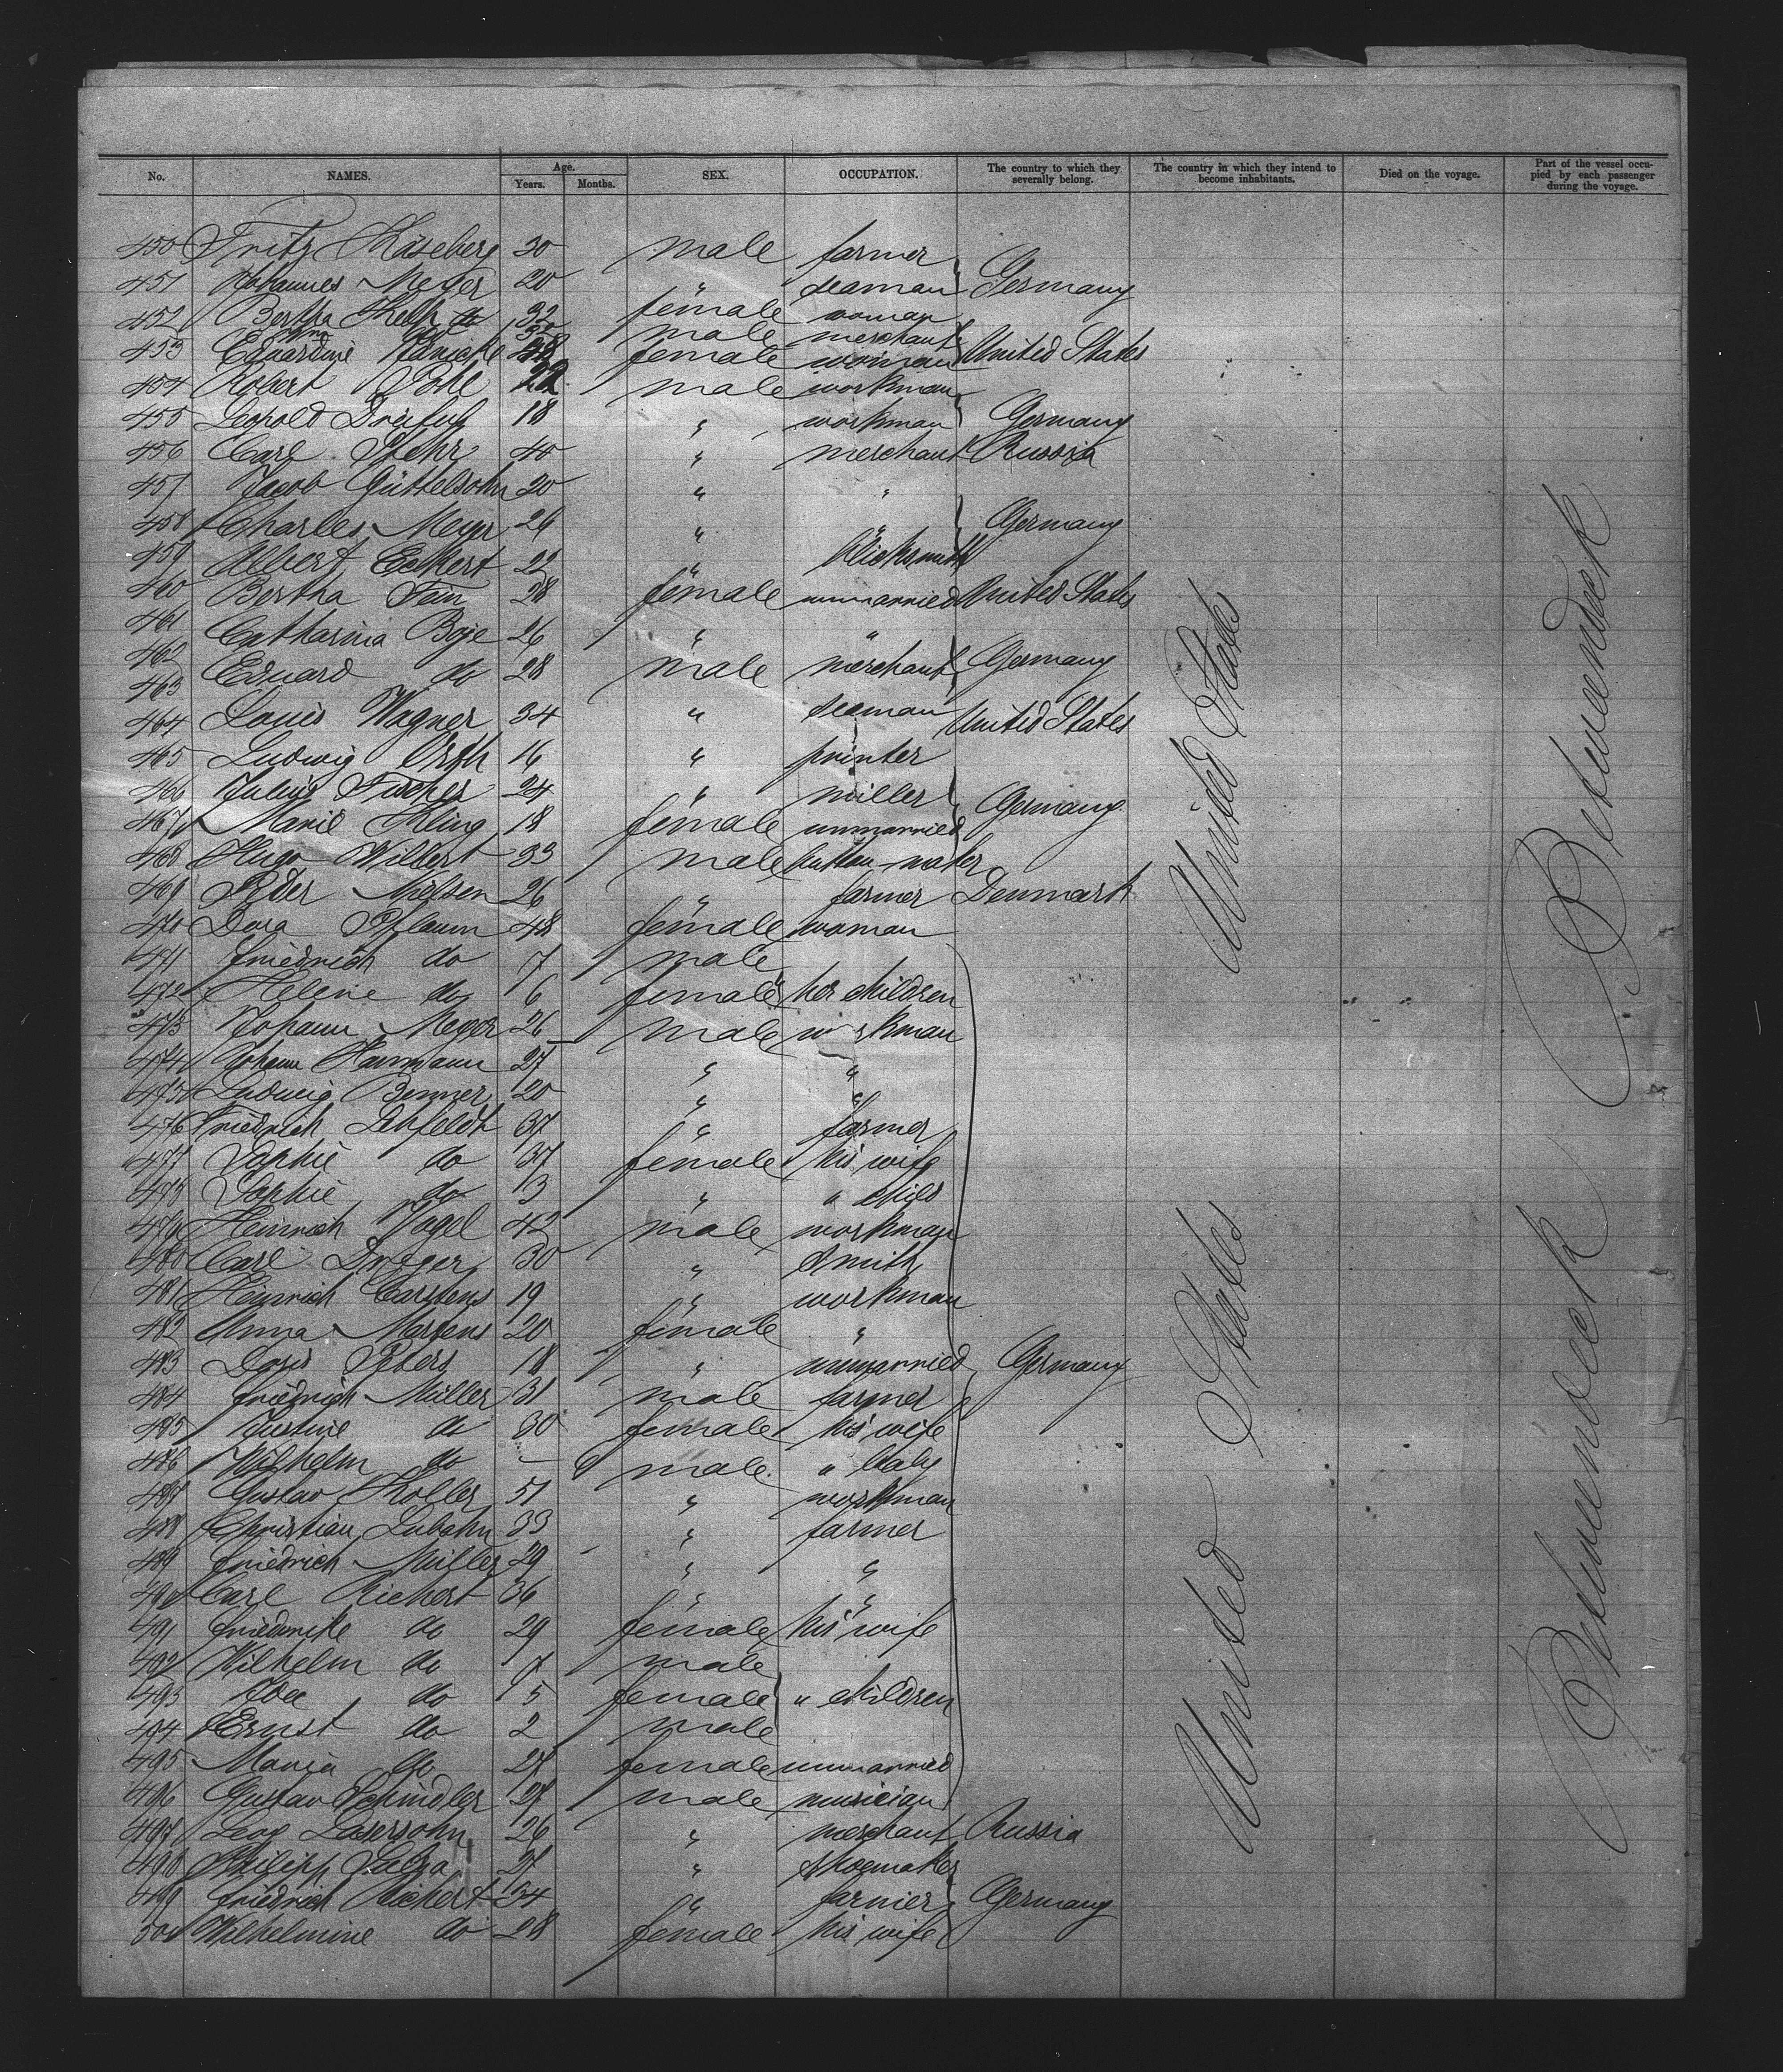 No. NAMES. Age. Years. Months. SEX. OCCUPATION. The country to which they severally belong. The country in which they intend to become inhabitants. Died on the voyage. Part of the vessel occupied by each passenger during the voyage.
450 Fritz Käseberg 30 male farmer
451 Johannes Meyer 20 " seaman Germany
452 Bertha 32 female woman
male merchant
453 female woman United States
454 Robert Pohl 22 male workman
455 Leopold 18 " workman Germany
456 Carl Stehr 40 " merchant Russia
457 Jacob Güttelsohn 20 " "
458 Charles Meyer 26 " " Germany
459 Albert Eckert 22 " blicksmith
460 Bertha 28 female unmarried United States
461 Catharina Boje 26 " "
462
463 Eduard do 28 male merchant Germany
464 Louis Wagner 34 " seaman United States
465 Ludwig Orth 16 " printer
466 Julius Fischer 24 " miller Germany
467 Marie Kling 18 female unmarried
468 Hugo Wilbert 33 male button-maker
469 Peder Nielsen 26 " farmer Denmark
470 Dora Pflaum 48 female woman
471 Friedrich do 7 male
472 Helene do 6 female her children
473 Johann Meyer 26 male workman
474 Johann Harmann 27 " "
475 Ludwig Benner 20 " "
476 Friedrich Lehfeldt 37 " farmer
477 Sophie do 37 female his wife
478 Sophie do 13 " " child
479 Heinrich Vogel 42 male workman
480 Carl Dreger 30 " smith
481 Heinrich Carstens 19 " workman
482 Anna Martens 20 female "
483 Doris Peters 18 " unmarried Germany
484 Friedrich Müller 31 male farmer
485 Justine do 30 female his wife
486 Wilhelm do - 6 male " baby
487 Gustav Koller 51 " workman
488 Christian Lubahn 33 " farmer
489 Friedrich Müller 29 " "
490 Carl Richert 36 " "
491 Friedericke do 29 female his wife
492 Wilhelm do 7 male
493 Ida do 5 female " children
494 Ernst do 2 male
495 Maria do 27 female unmarried
496 Gustav Schindler 27 male musician
497 Lasersohn 26 " merchant Russia
498 Philipp 27 " shoemaker
499 Friedrich Richert 34 " farmer Germany
500 Wilhelmine do 28 female his wife
United States
United States
Betweendeck
Betweendeck